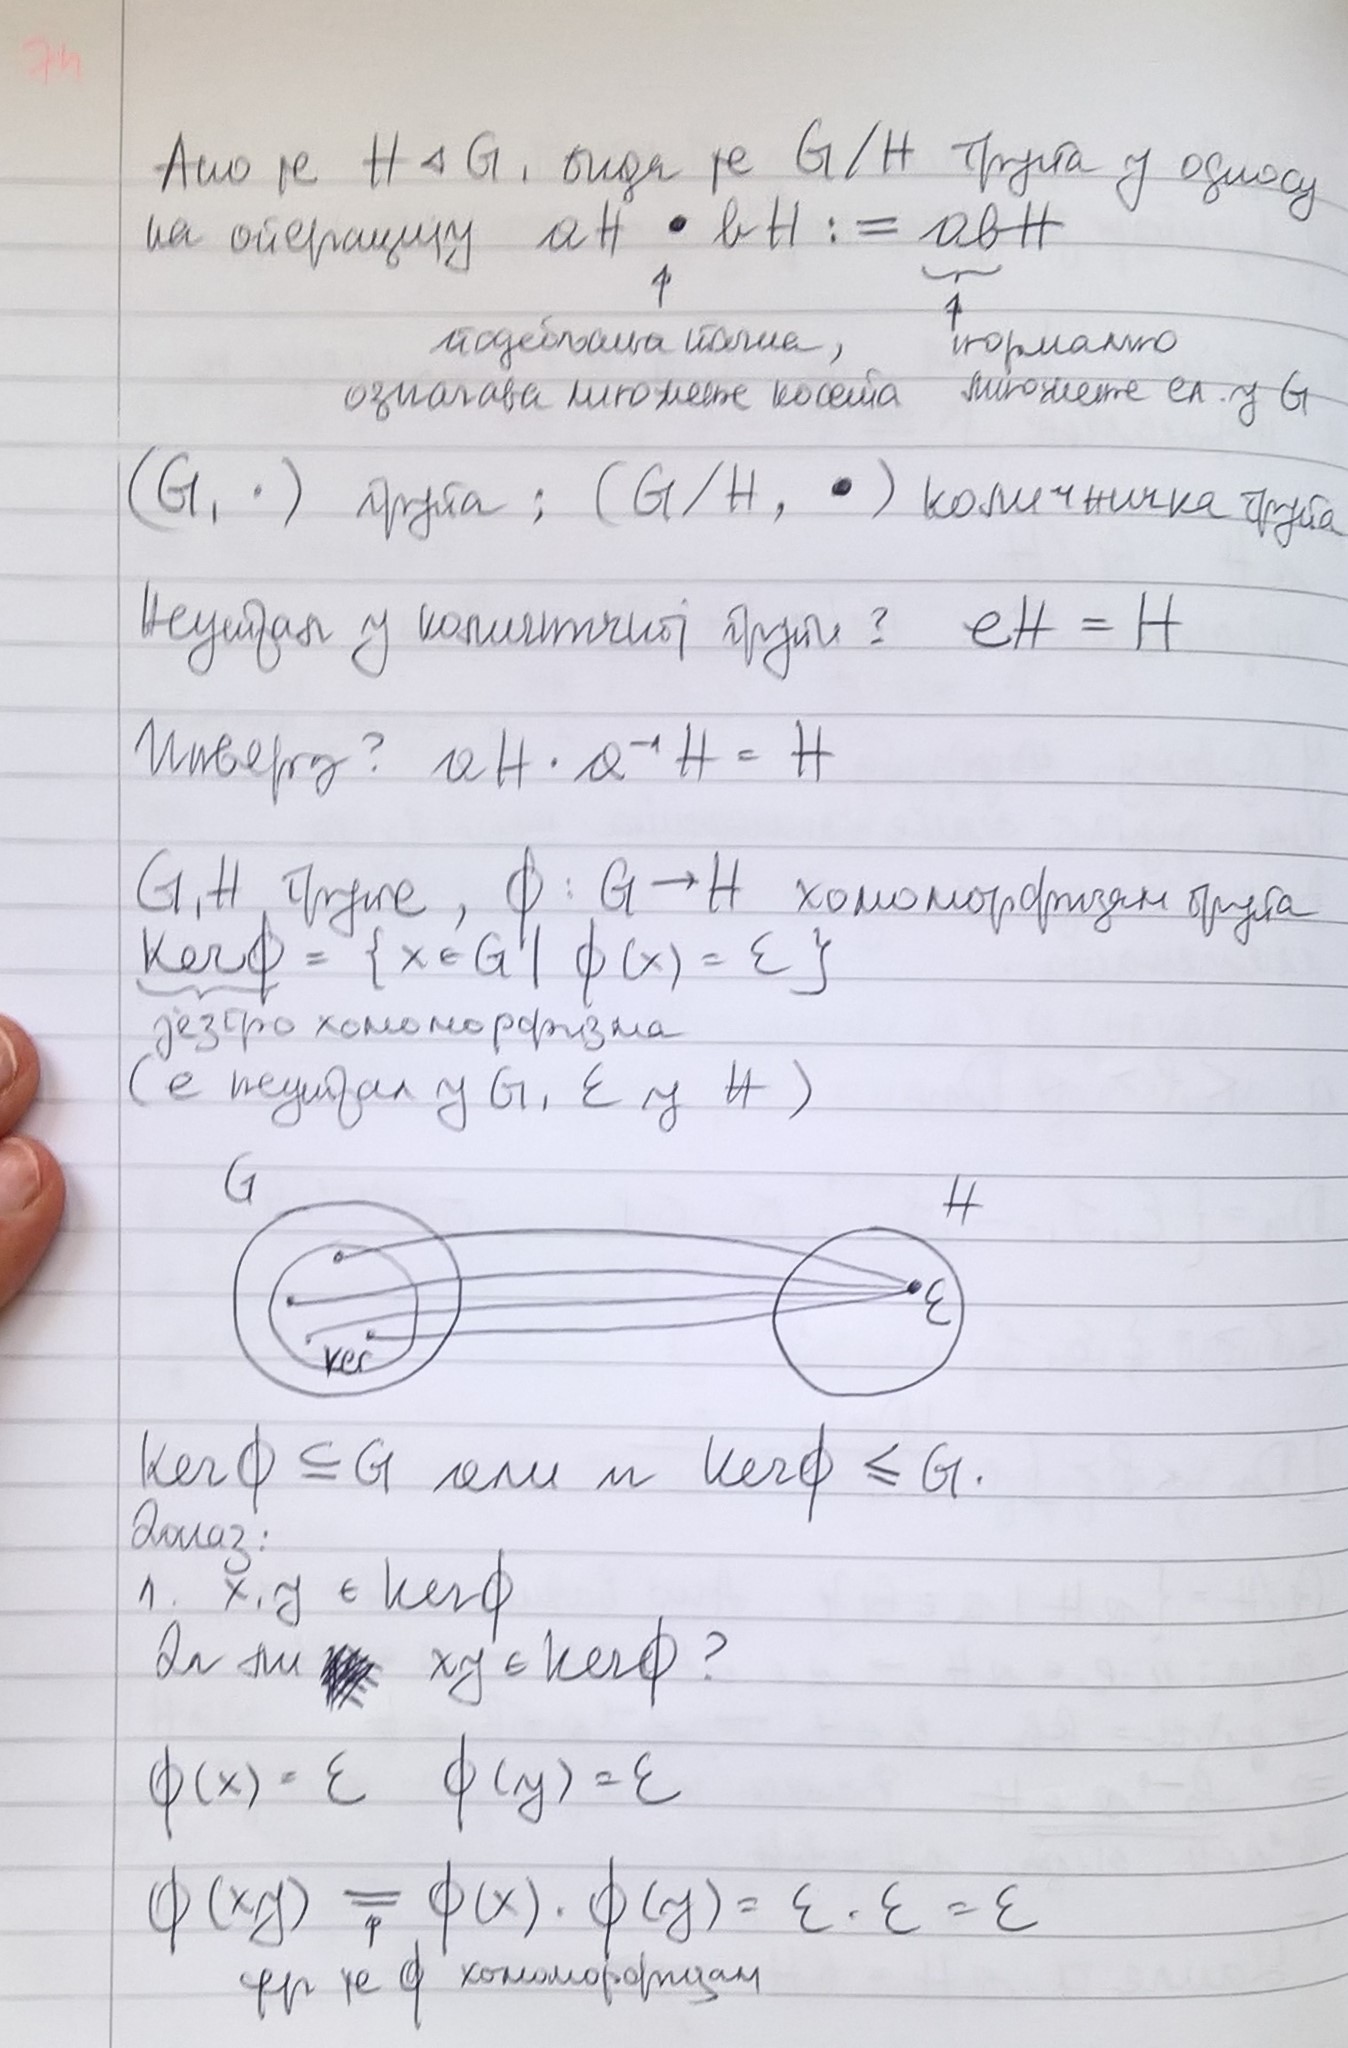 Ако је H ◁ G, онда је G/H група у односу
на операцију aH • bH := abH
подебљана тачка, нормално
означава множење косета множење ел. у G
(G, ·) група ; (G/H, •) количничка група
Неутрал у количничкој групи? eH = H
Инверз? aH · a⁻¹H = H
G, H групе, ϕ : G → H хомоморфизам група
Ker ϕ = {x ∈ G | ϕ(x) = ε}
језгро хомоморфизма
(e неутрал у G, ε у H)
G H
ε
Ker
Ker ϕ ⊆ G али и Ker ϕ ≤ G.
Доказ:
1. x, y ∈ Ker ϕ
Да ли xy ∈ Ker ϕ?
ϕ(x) = ε ϕ(y) = ε
ϕ(xy) = ϕ(x) · ϕ(y) = ε · ε = ε
јер је ϕ хомоморфизам